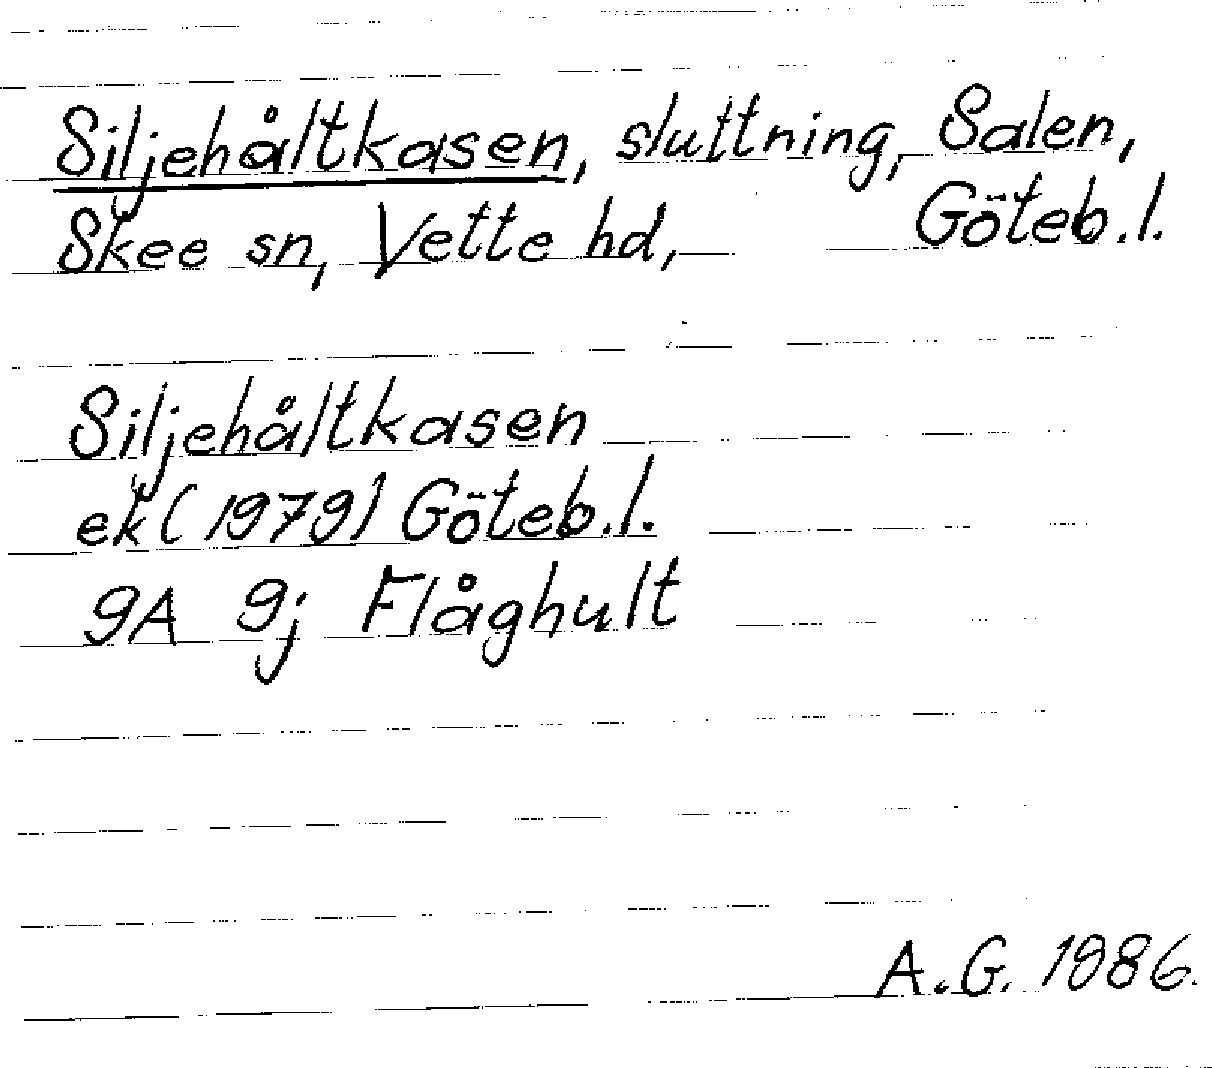 Siljehåltkasen, sluttning, Salen,
Skee sn, Vette hd, Göteb.l.
Siljehåltkasen
ek (1979) Göteb.l.
9A 9j Flåghult
A.G. 1986.